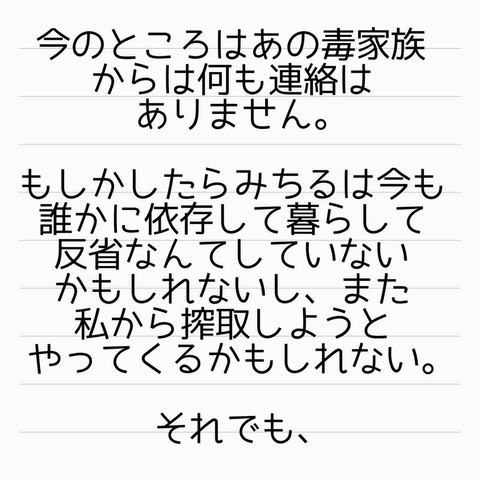 今のところはあの毒家族
からは何も連絡は
ありません。
もしかしたらみちるは今も
誰かに依存して暮らして
反省なんてしていない
かもしれないし、また
私から搾取しようと
やってくるかもしれない。
それでも、